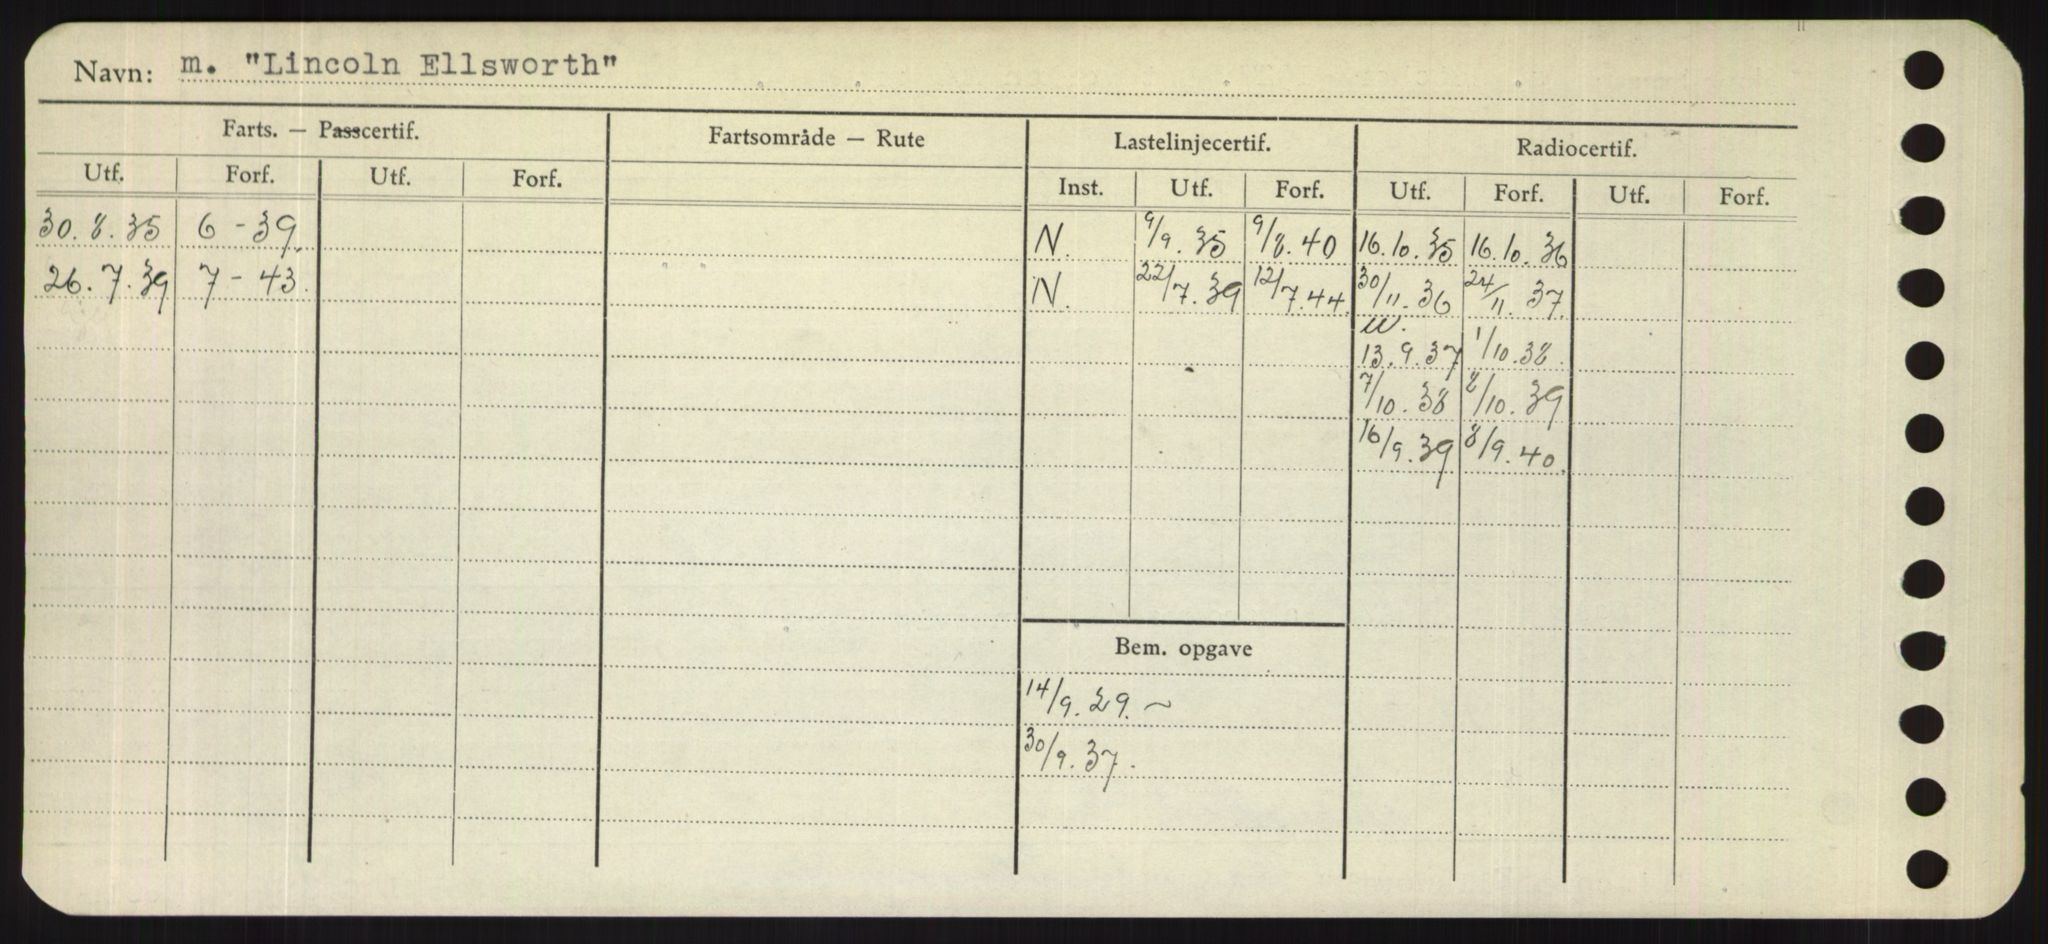 Navn: m. "Lincoln Ellsworth"
Farts. — Passcertif. Fartsområde — Rute Lastelinjecertif. Radiocertif.
Utf. Forf. Utf. Forf. Inst. Utf. Forf. Utf. Forf. Utf. Forf.
30.8.35 6-39. N. 9/9.35 9/8.40 16.10.35 16.10.36
26.7.39 7-43. N. 22/7.39 12/7.44. 30/11.36 24/11.37.
13.9.37 1/10.38.
7/10.38 8/10.39
16/9.39 8/9.40.
Bem. opgave
14/9.29. ~
30/9.37.